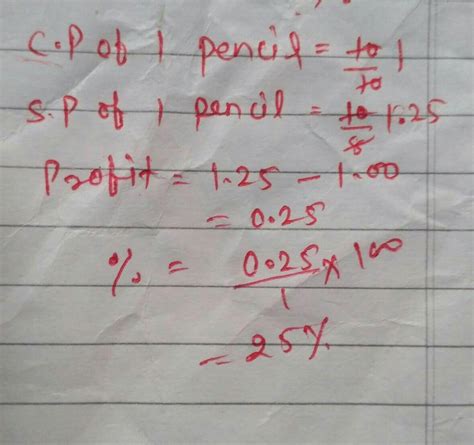 C.P of 1 pencil = 10/10 1
S.P of 1 pencil = 10/8 1.25
Profit = 1.25 - 1.00
= 0.25
% = 0.25/1 × 100
= 25%